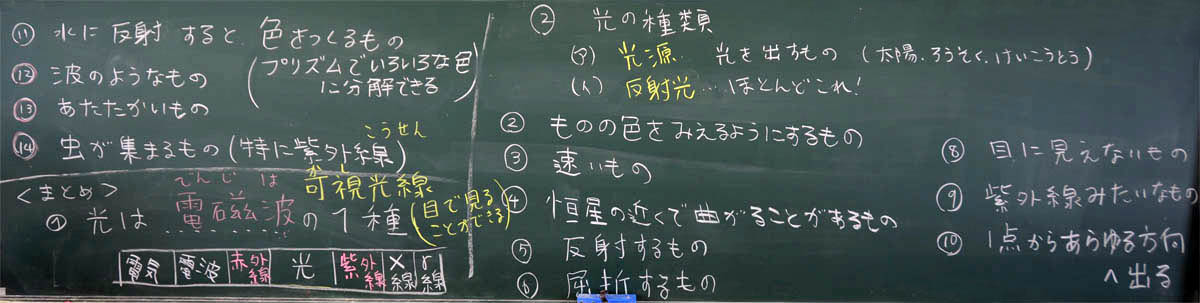 ⑪ 水に反射すると、色をつくるもの
(プリズムでいろいろな色
に分解できる)
⑫ 波のようなもの
⑬ あたたかいもの
⑭ 虫が集まるもの(特に紫外線)
<まとめ>
① 光は電磁波の1種
でんじは
可視光線
かし
こうせん
(目で見る
ことができる)
電気 電波 赤外線 光 紫外線 X線 γ線
② 光の種類
(ア) 光源 光を出すもの (太陽、ろうそく、けいこうとう)
(イ) 反射光…ほとんどこれ!
② ものの色をみえるようにするもの
③ 速いもの
④ 恒星の近くで曲がることがあるもの
⑤ 反射するもの
⑥ 屈折するもの
⑧ 目に見えないもの
⑨ 紫外線みたいなもの
⑩ 1点からあらゆる方向
へ出る